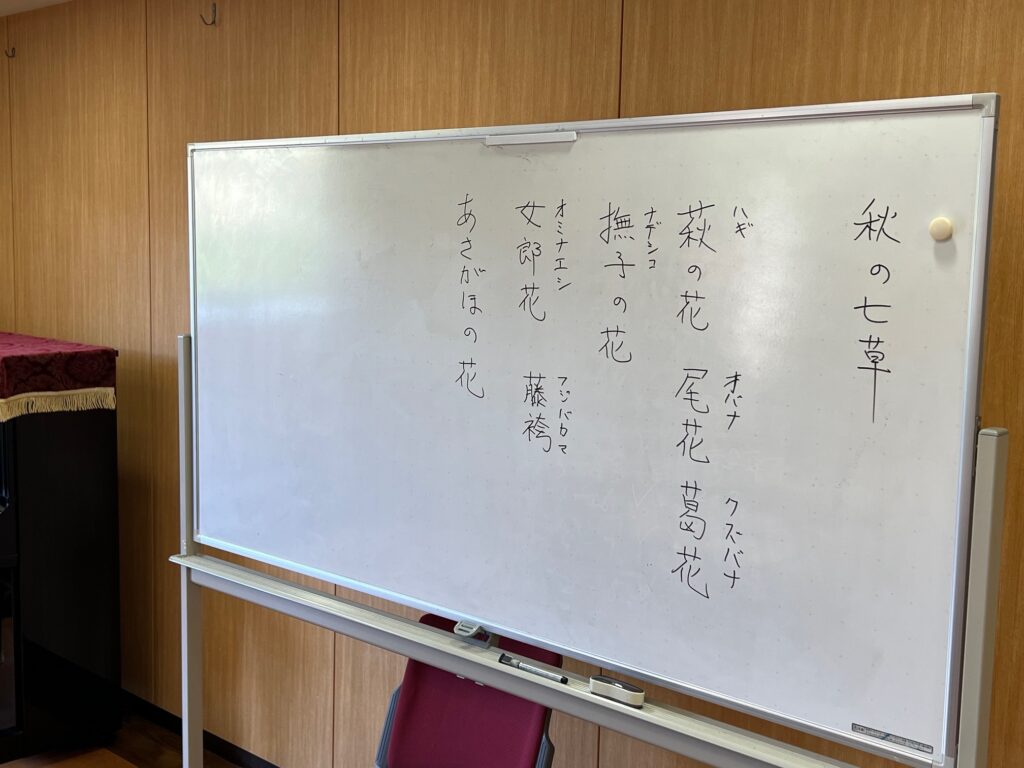 秋の七草
ハギ オバナ クズバナ
萩の花 尾花 葛花
ナデシコ
撫子の花
オミナエシ フジバカマ
女郎花 藤袴
あさがほの花